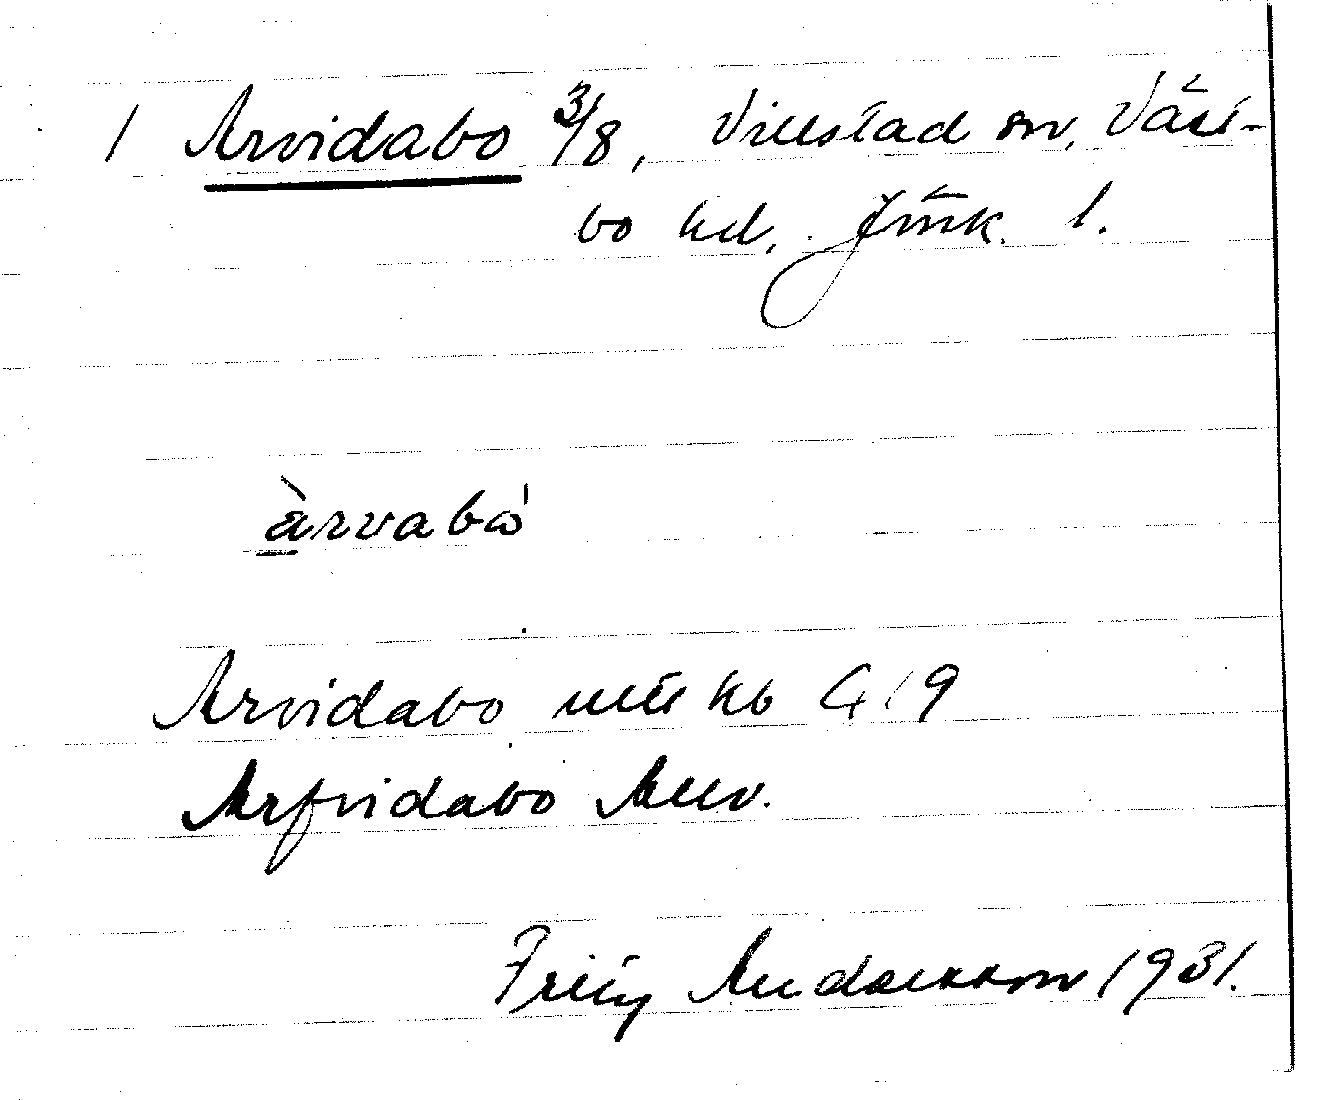 1 Arvidabo 3/8, Villstad sn, Väst-
bo hd, Jönk. l.
àrvabó
Arvidabo utt kb G 19
Arfvidabo Allv.
Fritz Andersson 1931.